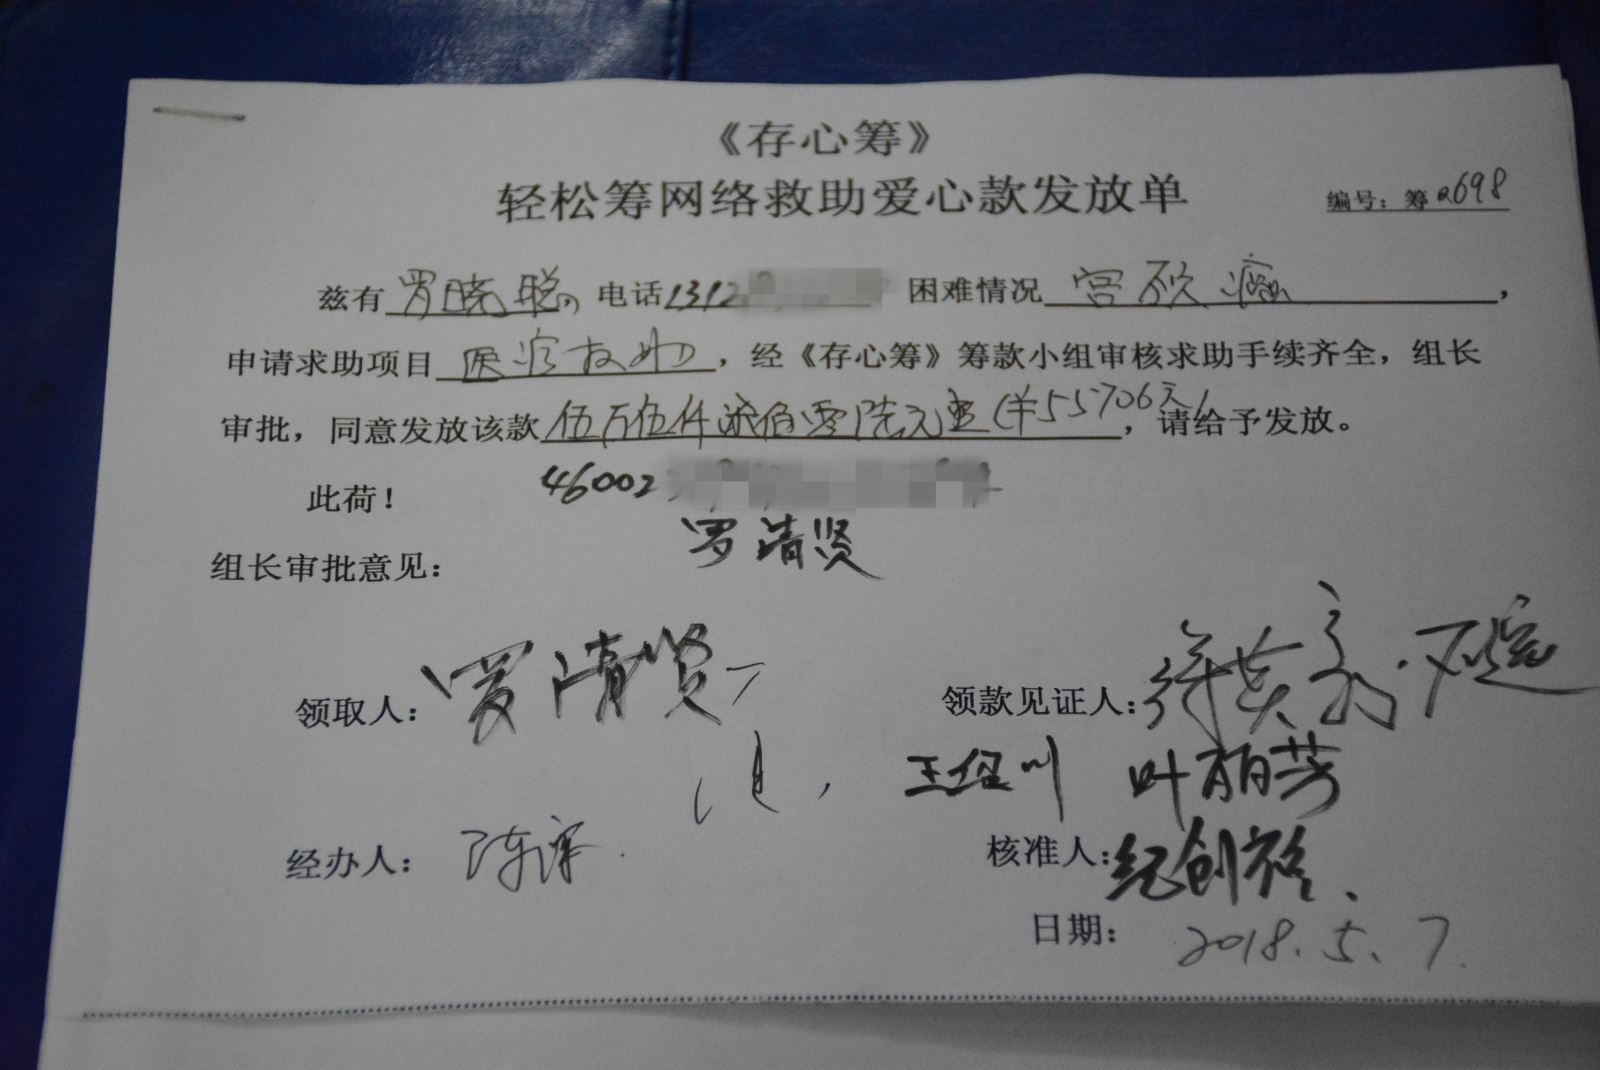 《存心筹》
轻松筹网络救助爱心款发放单
编号：筹a698
兹有罗晓聪，电话1312 困难情况宫颈癌，
申请求助项目医疗救助，经《存心筹》筹款小组审核求助手续齐全，组长
审批，同意发放该款伍万伍仟柒佰零陆元整（¥55706元），请给予发放。
此荷！ 46002
罗清贤
组长审批意见：
领取人：罗清贤 领款见证人：
叶丽芳
经办人： 核准人：纪创裕
日期：2018.5.7.